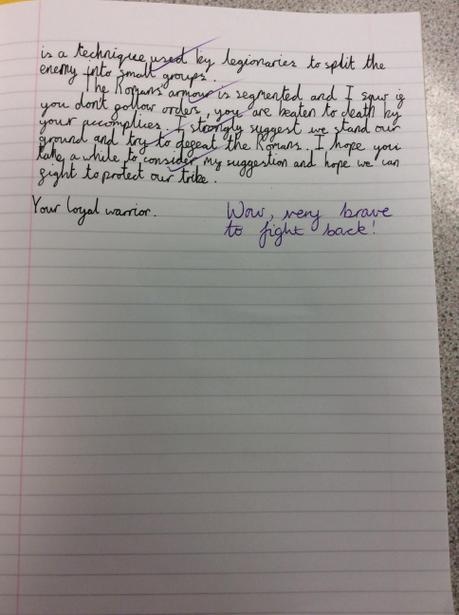 is a technique used by legionaries to split the
enemy into small groups.
The Romans armour is segmented and I saw if
you don't follow orders, you are beaten to death by
your accomplices. I strongly suggest we stand our
ground and try to defeat the Romans. I hope you
take a while to consider my suggestion and hope we can
fight to protect our tribe.
Your loyal warrior.
Wow, very brave
to fight back!